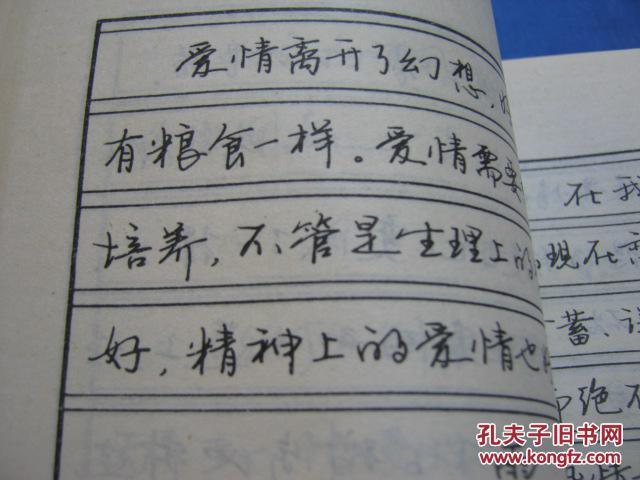 爱情离开了幻想，
有粮食一样。爱情需要
培养，不管是生理上的
好，精神上的爱情也
在我
现在
蓄、
绝不
孔夫子旧书网
KONGFZ.COM